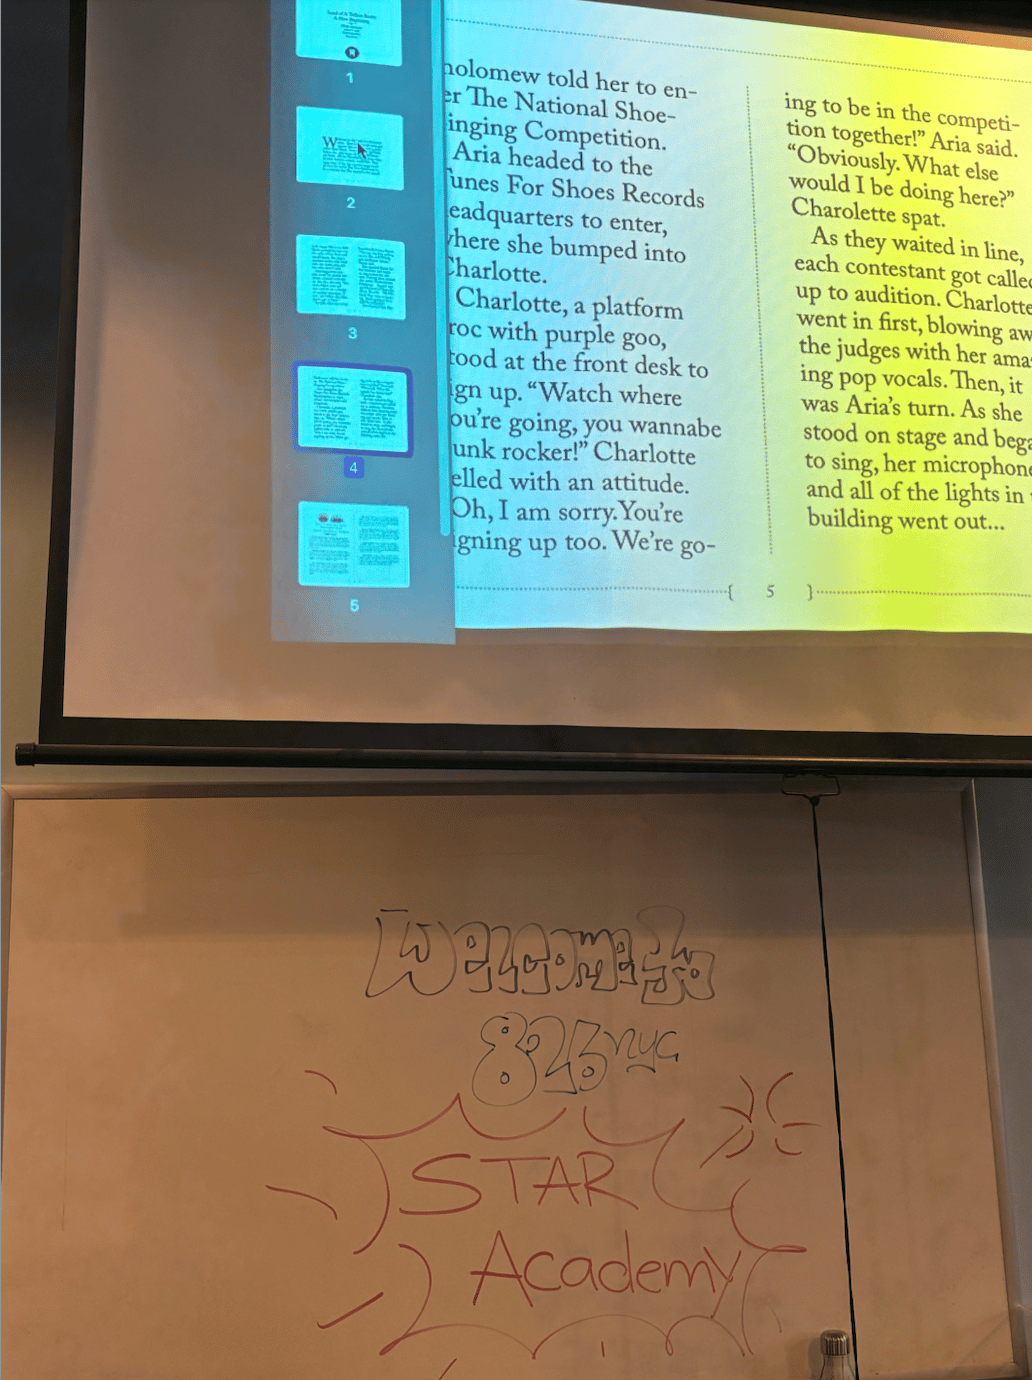 1
2
3
4
5
holomew told her to en-
er The National Shoe-
inging Competition.
Aria headed to the
Tunes For Shoes Records
eadquarters to enter,
where she bumped into
Charlotte.
Charlotte, a platform
roc with purple goo,
tood at the front desk to
ign up. “Watch where
ou’re going, you wannabe
unk rocker!” Charlotte
elled with an attitude.
Oh, I am sorry. You’re
igning up too. We’re go-
ing to be in the competi-
tion together!” Aria said.
“Obviously. What else
would I be doing here?”
Charolette spat.
As they waited in line,
each contestant got called
up to audition. Charlotte
went in first, blowing aw
the judges with her ama
ing pop vocals. Then, it
was Aria’s turn. As she
stood on stage and bega
to sing, her microphone
and all of the lights in
building went out...
{ 5 }
Welcome to
826 nyc
STAR
Academy